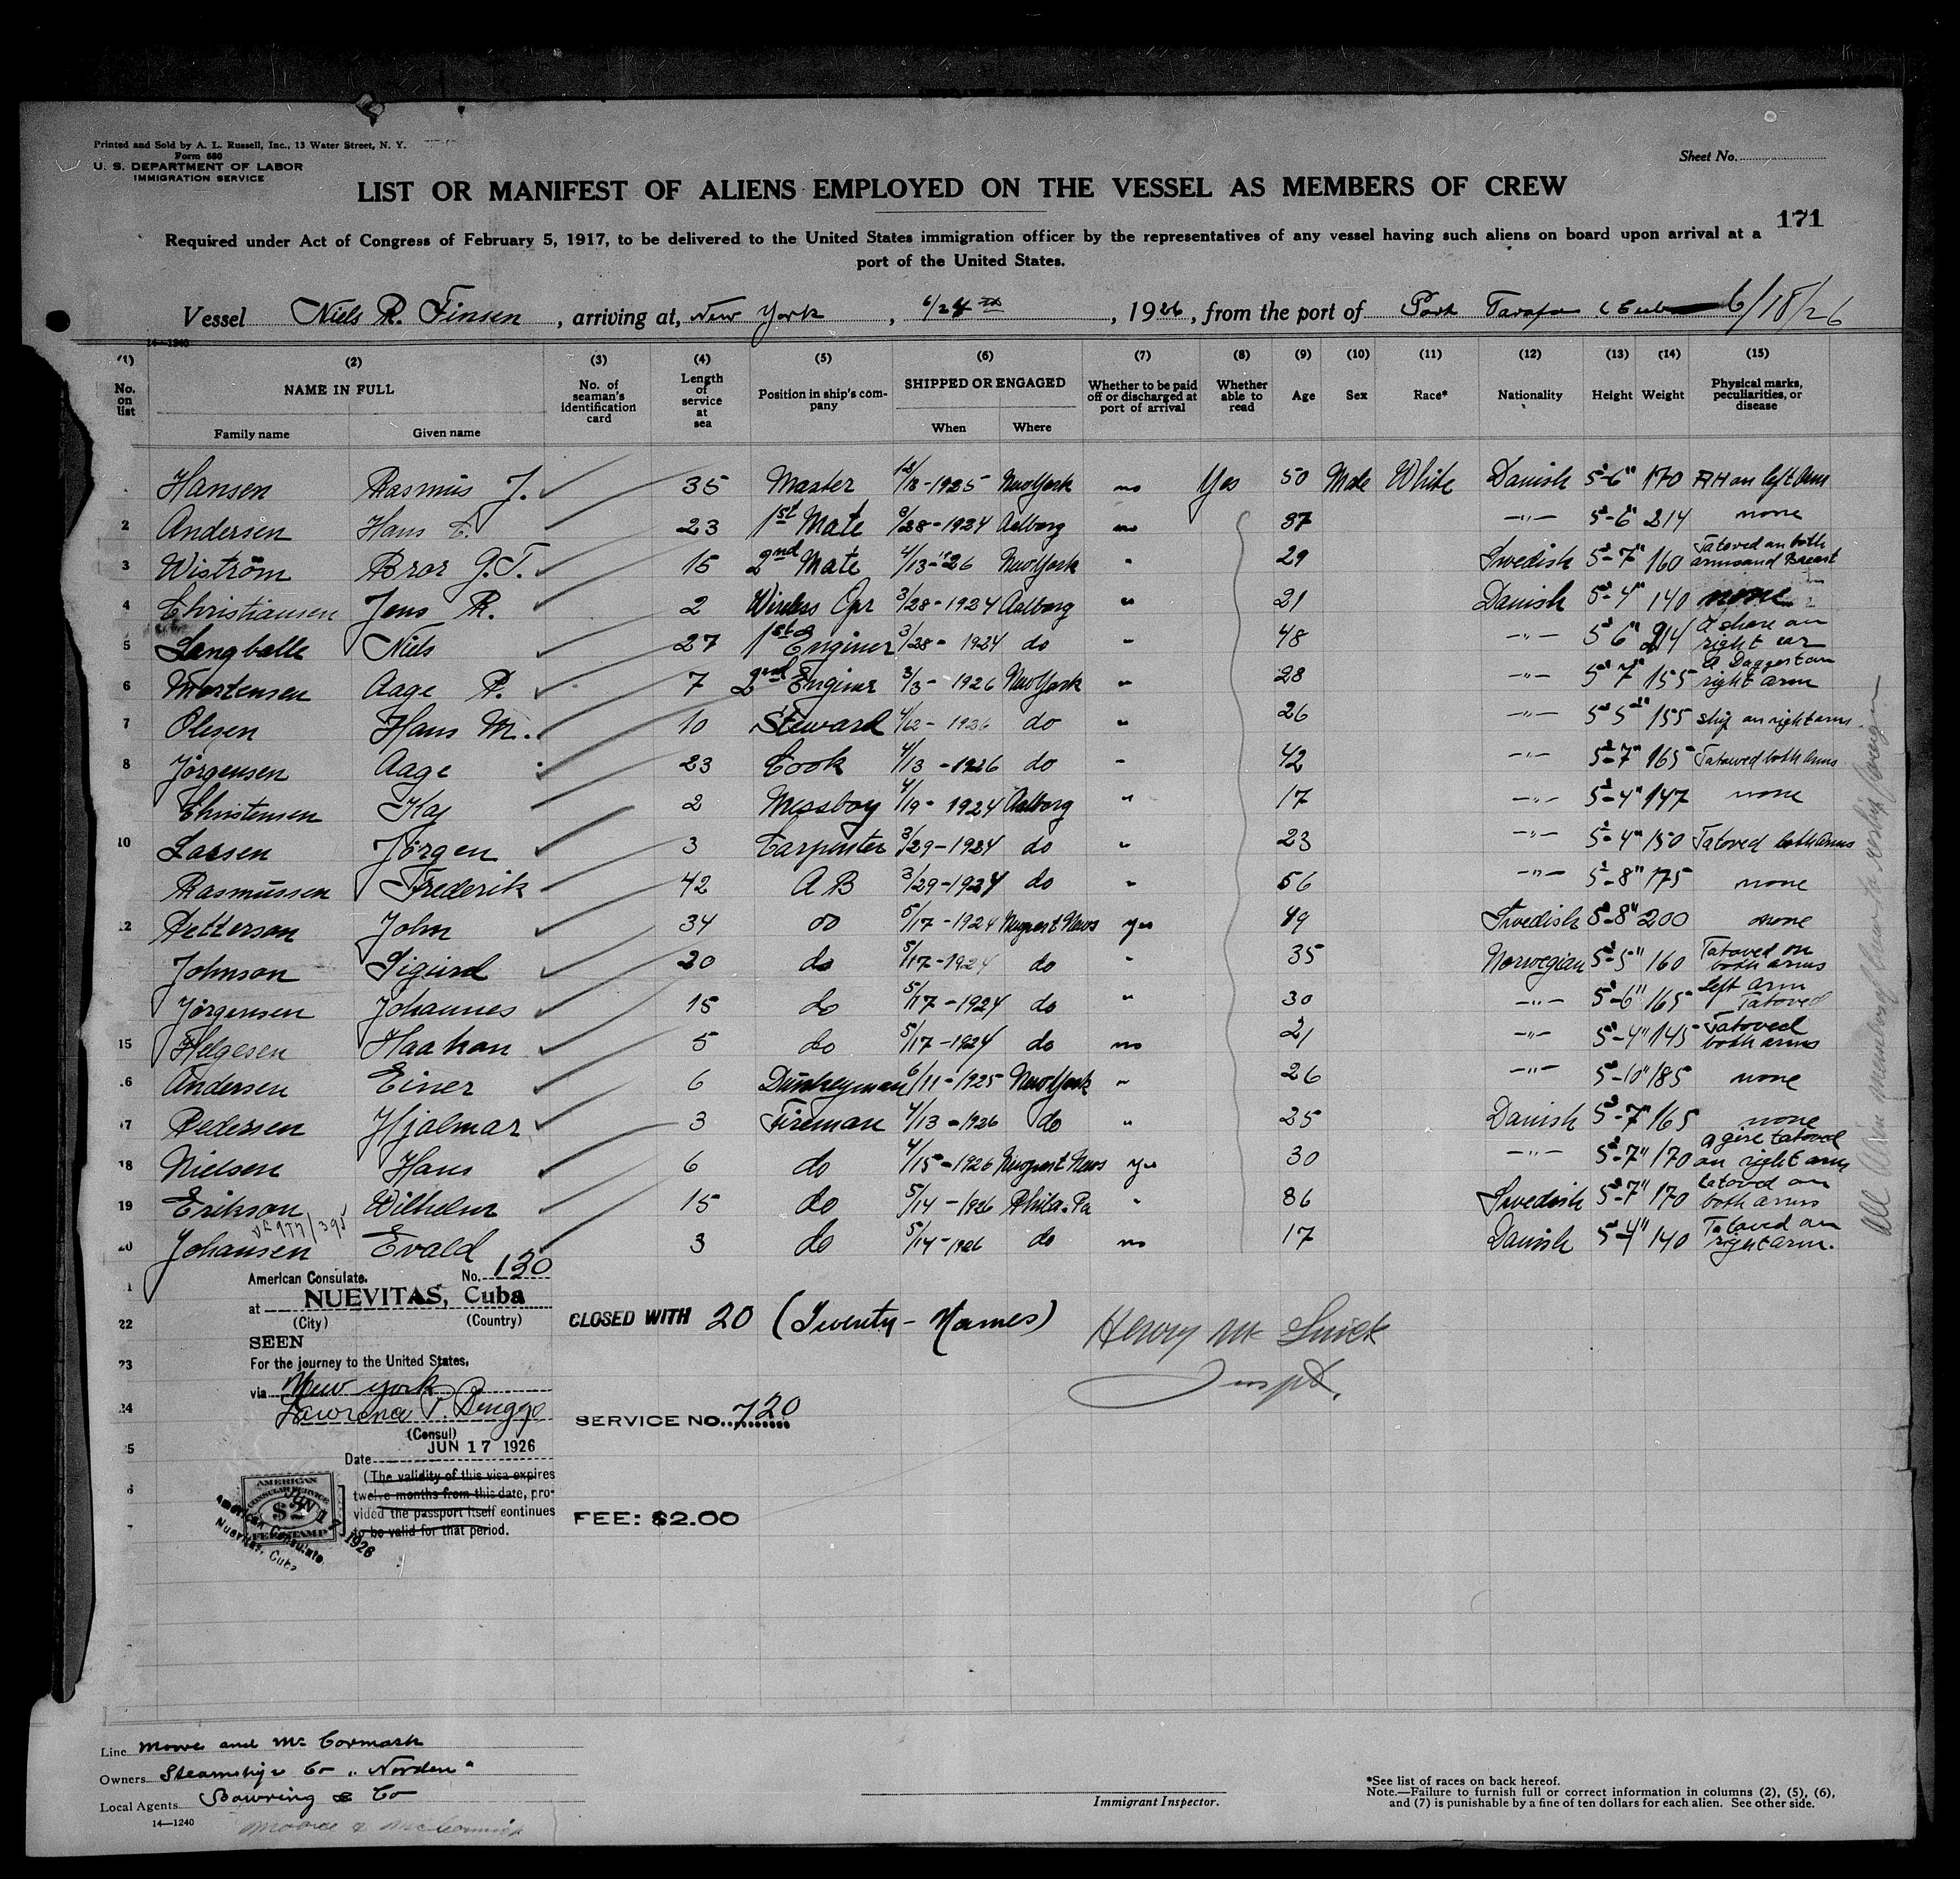 Printed and Sold by A. L. Russell, Inc., 13 Water Street, N. Y.
Form 680
U. S. DEPARTMENT OF LABOR
IMMIGRATION SERVICE
Sheet No.
LIST OR MANIFEST OF ALIENS EMPLOYED ON THE VESSEL AS MEMBERS OF CREW
171
Required under Act of Congress of February 5, 1917, to be delivered to the United States immigration officer by the representatives of any vessel having such aliens on board upon arrival at a
port of the United States.
Vessel Niels R. Finsen, arriving at, New York, 6/24th, 1926, from the port of Port Tarafa (Cuba 6/18/26
14—1240
(1) No. on list
(2) NAME IN FULL Family name Given name
(3) No. of seaman's identification card
(4) Length of service at sea
(5) Position in ship's company
(6) SHIPPED OR ENGAGED When Where
(7) Whether to be paid off or discharged at port of arrival
(8) Whether able to read
(9) Age
(10) Sex
(11) Race*
(12) Nationality
(13) Height
(14) Weight
(15) Physical marks, peculiarities, or disease
Hansen Rasmus J. 35 Master /8-1925 New York no Yes 50 Male White Danish 5-6" 170 RH on left arm
2 Andersen Hans 23 1st Mate /28-1924 Aalborg no 37 -"- 5-6" 214 none
3 Wiström Bror G.T. 15 2nd Mate 4/13-26 New York " 29 Swedish 5-7" 160 Tatoved on both arms and Breast
4 Christiansen Jens R. 2 Wireless Opr 3/28-1924 Aalborg " 21 Danish 5-4" 140 none
5 Langballe Niels 27 1st Enginer 3/28-1924 do " 48 -"- 5-6" 214 right ear
6 Mortensen Aage P. 7 2nd Enginer 3/3-1926 New York " 28 -"- 5-7" 155 A Dagger on right arm
7 Olesen Hans M. 10 Steward 1926 do " 26 -"- 5-5" 155 ship on right arm
8 Jörgensen Aage 23 Cook 4/13-1926 do " 42 -"- 5-7" 165 Tatowed both arms
Christensen Kaj 2 Messboy 4/19-1924 Aalborg " 17 -"- 5-4" 147 none
10 Lassen Jörgen 3 Carpenter 3/29-1924 do " 23 -"- 5-4" 150 Tatoved both arms
Rasmussen Frederik 42 A B 3/29-1924 do " 56 -"- 5-8" 175 none
12 Petterson John 34 do 5/17-1924 Newport News yes 49 Swedish 5-8" 200 none
Johnson Sigurd 20 do 5/17-1924 do " 35 Norwegian 5-5" 160 Tatoved on both arms
Jörgensen Johannes 15 do 5/17-1924 do " 30 -"- 5-6" 165 left arm Tatoved
15 Helgesen Haakon 5 do 5/17-1924 do no 21 -"- 5-4" 145 Tatoved both arms
6 Andersen Einer 6 Dunkeyman 6/11-1925 New York " 26 -"- 5-10" 185 none
17 Pedersen Hjalmar 3 Fireman 4/13-1926 do " 25 Danish 5-7" 165 none
18 Nielsen Hans 6 do 4/15-1926 Newport News yes 30 -"- 5-7" 170 a girl tatoved on right arm
19 Erikson Wilhelm 15 do 5/14-1926 Phila. Pa " 36 Swedish 5-7" 170 tatoved on both arms
20 Johansen Evald 3 do 5/14-1926 do no 17 Danish 5-4" 140 Tatoved on right arm.
All alien members of crew to reship foreign
American Consulate. No. 130
at NUEVITAS, Cuba
(City) (Country)
SEEN
For the journey to the United States,
via New York
(Consul)
Date JUN 17 1926
(The validity of this visa expires
twelve months from this date, pro-
vided the passport itself continues
to be valid for that period.
AMERICAN
CONSULAR SERVICE
$2
FEE STAMP
American Consulate
Nuevitas, Cuba
JUN 17 1926
22
23
24
CLOSED WITH 20 (Twenty - Names)
SERVICE NO. 720
FEE: $2.00
Henry Mc
Inspt.
Line Moore and McCormack
Owners Steamship Co "Norden"
Local Agents Bowring & Co
14—1240
Moore & McCormick
Immigrant Inspector.
*See list of races on back hereof.
Note.—Failure to furnish full or correct information in columns (2), (5), (6),
and (7) is punishable by a fine of ten dollars for each alien. See other side.